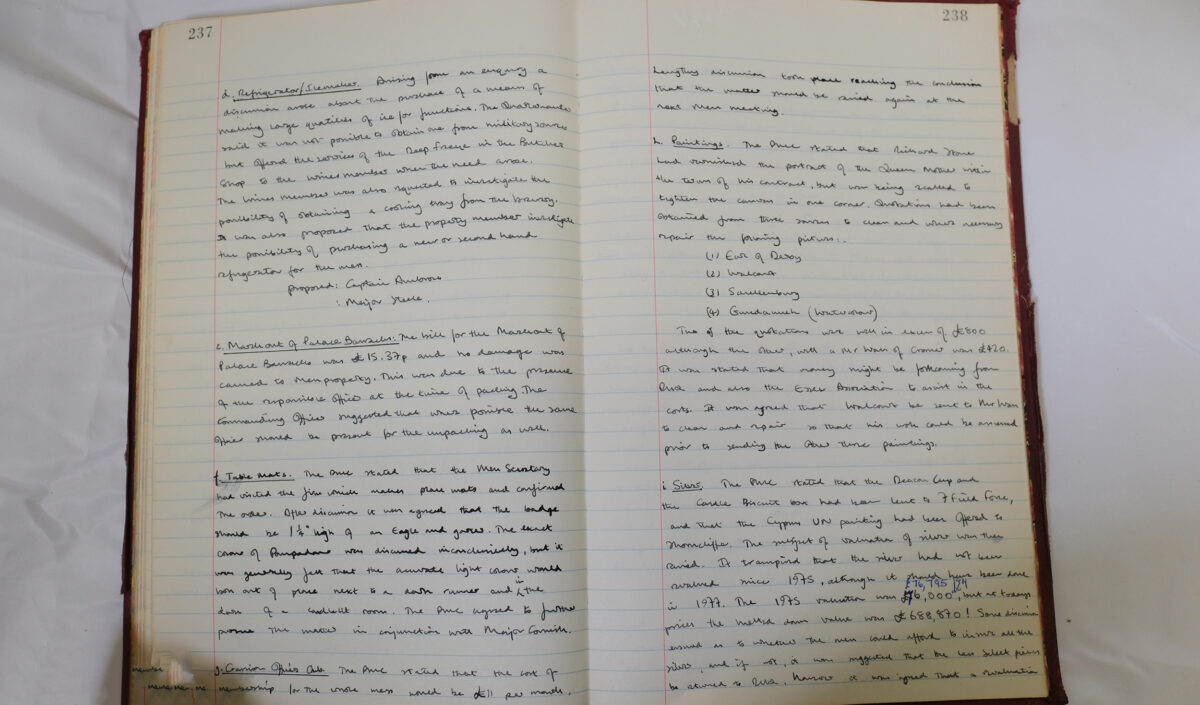 237
d. Refrigerator/Icemaker. Arising from an enquiry a
discussion arose about the purchase of a means of
making large quantities of ice for functions. The Quartermaster
said it was not possible to obtain one from military sources
but offered the services of the Deep Freeze in the Butcher
Shop to the wines member when the need arose.
The wines member was also requested to investigate the
possibility of obtaining a cooling tray from the brewery.
It was also proposed that the property member investigate
the possibility of purchasing a new or second hand
refrigerator for the mess.
proposed: Captain Ambrose
: Major Steele.
e. Marchout of Palace Barracks: The bill for the Marchout of
Palace Barracks was £15.37p and no damage was
caused to Mess property. This was due to the presence
of the responsible Officer at the time of packing. The
Commanding Officer suggested that where possible the same
Officer should be present for the unpacking as well.
f. Table mats. The PMC stated that the Mess Secretary
had visited the firm which makes place mats and confirmed
the order. After discussion it was agreed that the badge
should be 1¼" high of an Eagle and the exact
colour of Pompadour was discussed inconclusively, but it
was generally felt that the accurate light colour would
look out of place next to a dark runner and in the
dark of a candlelit room. The PMC agreed to further
pursue the matter in conjunction with Major Cornish.
g. Officers Club The PMC stated that the cost of
membership for the whole mess would be £11 per month.
238
Lengthy discussion took place reaching the conclusion
that the matter should be raised again at the
next Mess meeting.
h. Paintings. The PMC stated that Richard Stone
had varnished the portrait of the Queen Mother within
the terms of his contract, but was being recalled to
tighten the canvas in one corner. Quotations had been
obtained from three sources to clean and where necessary
repair the following pictures:.
(1) Earl of Derby
(2) Walcourt
(3) Schellenburg
(4) (Watercolour)
Two of the quotations were well in excess of £800
although the other, with a Mr Wain of Cromer was £420.
It was stated that money might be forthcoming from
RHQ and also the Essex Association to assist in the
costs. It was agreed that Walcourt be sent to Mr Wain
to clean and repair so that his work could be assessed
prior to sending the other three paintings.
i Silver. The PMC stated that the Deacon Cup and
the Castle Biscuit box had been lent to 7 Field Force,
and that the Cyprus UN painting had been offered to
Shorncliffe. The subject of valuation of silver was then
raised. It transpired that the silver had not been
revalued since 1975, although it should have been done
£76,795
in 1977. The 1975 valuation was £76,000, but at todays
prices the melted down value was £688,870! Some discussion
ensued as to whether the mess could afford to insure all the
silver, and if not, it was suggested that the less select pieces
be returned to RHQ. However it was agreed that a revaluation